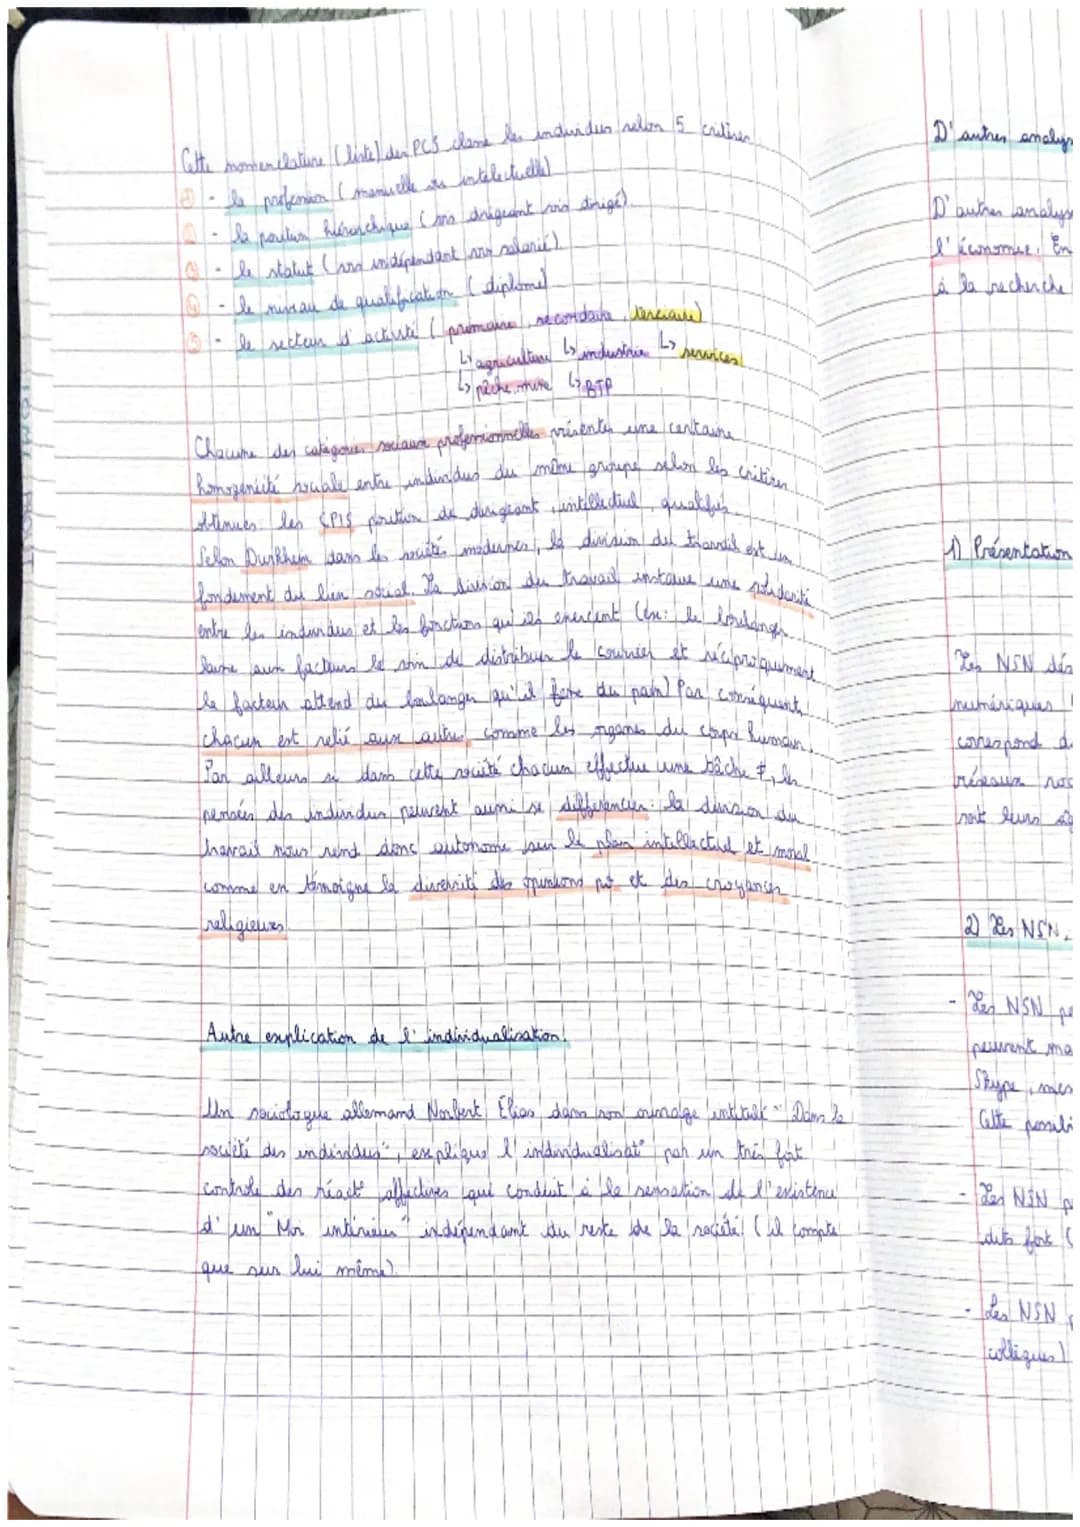 Cette nomenclature (liste) des PCS classe les individus selon 5 critères
① - la profession (manuelle ou intelectuelle)
② - la position hiérarchique (sois dirigeant sois dirigé).
③ - le statut (sois indépendant sois salarié).
④ - le niveau de qualification (diplome)
⑤ - le secteur d'activité (primaire, secondaire, terciaire)
↳ agriculture ↳ industrie ↳ services
↳ pêche, mine ↳ BTP
Chacune des catégories sociaux professionnelles présentes une certaine
homogénéité sociale entre individus du même groupe selon les critères
obtenues les CPIS position de dirigeant, intellectuel, qualifiés.
Selon Durkheim dans les société modernes, la division du travail est un
fondement du lien social. La division du travail instaure une solidarité
entre les individus et les fonctions qu'ils exercent (ex: le boulanger
laisse aux facteurs le soin de distribuer le courrier et réciproquement
le facteur attend du boulanger qu'il fasse du pain) Par conséquent,
chacun est relié aux autres comme les organes du corps humain.
Par ailleurs si dans cette société chacun effectue une tâche ≠, les
pensées des individus peuvent aussi se différencier: la division du
travail nous rend donc autonome sur le plan intellectuel et moral
comme en témoigne la diversité des opinions po et des croyances
religieuses
Autre explication de l'individualisation.
Un sociologue allemand Norbert Elias dans son ouvrage intitulé "Dans la
société des individus", explique l'individualisat° par un très fort
controle des réact° affectives qui conduit à la sensation de l'existence
d'un "Moi intérieur" indépendant du reste de la société (il compte
que sur lui même).
D'autres analys
D'autres analys
l'économie. En
à la recherche
1) Présentation
Les NSN dés
numériques
correspond
réseaux soc
soit leurs
2) Les NSN.
- Les NSN pe
peuvent ma
Skype, mes
Cette possibi
- Les NSN p
dits fort (
- Les NSN
collègues)